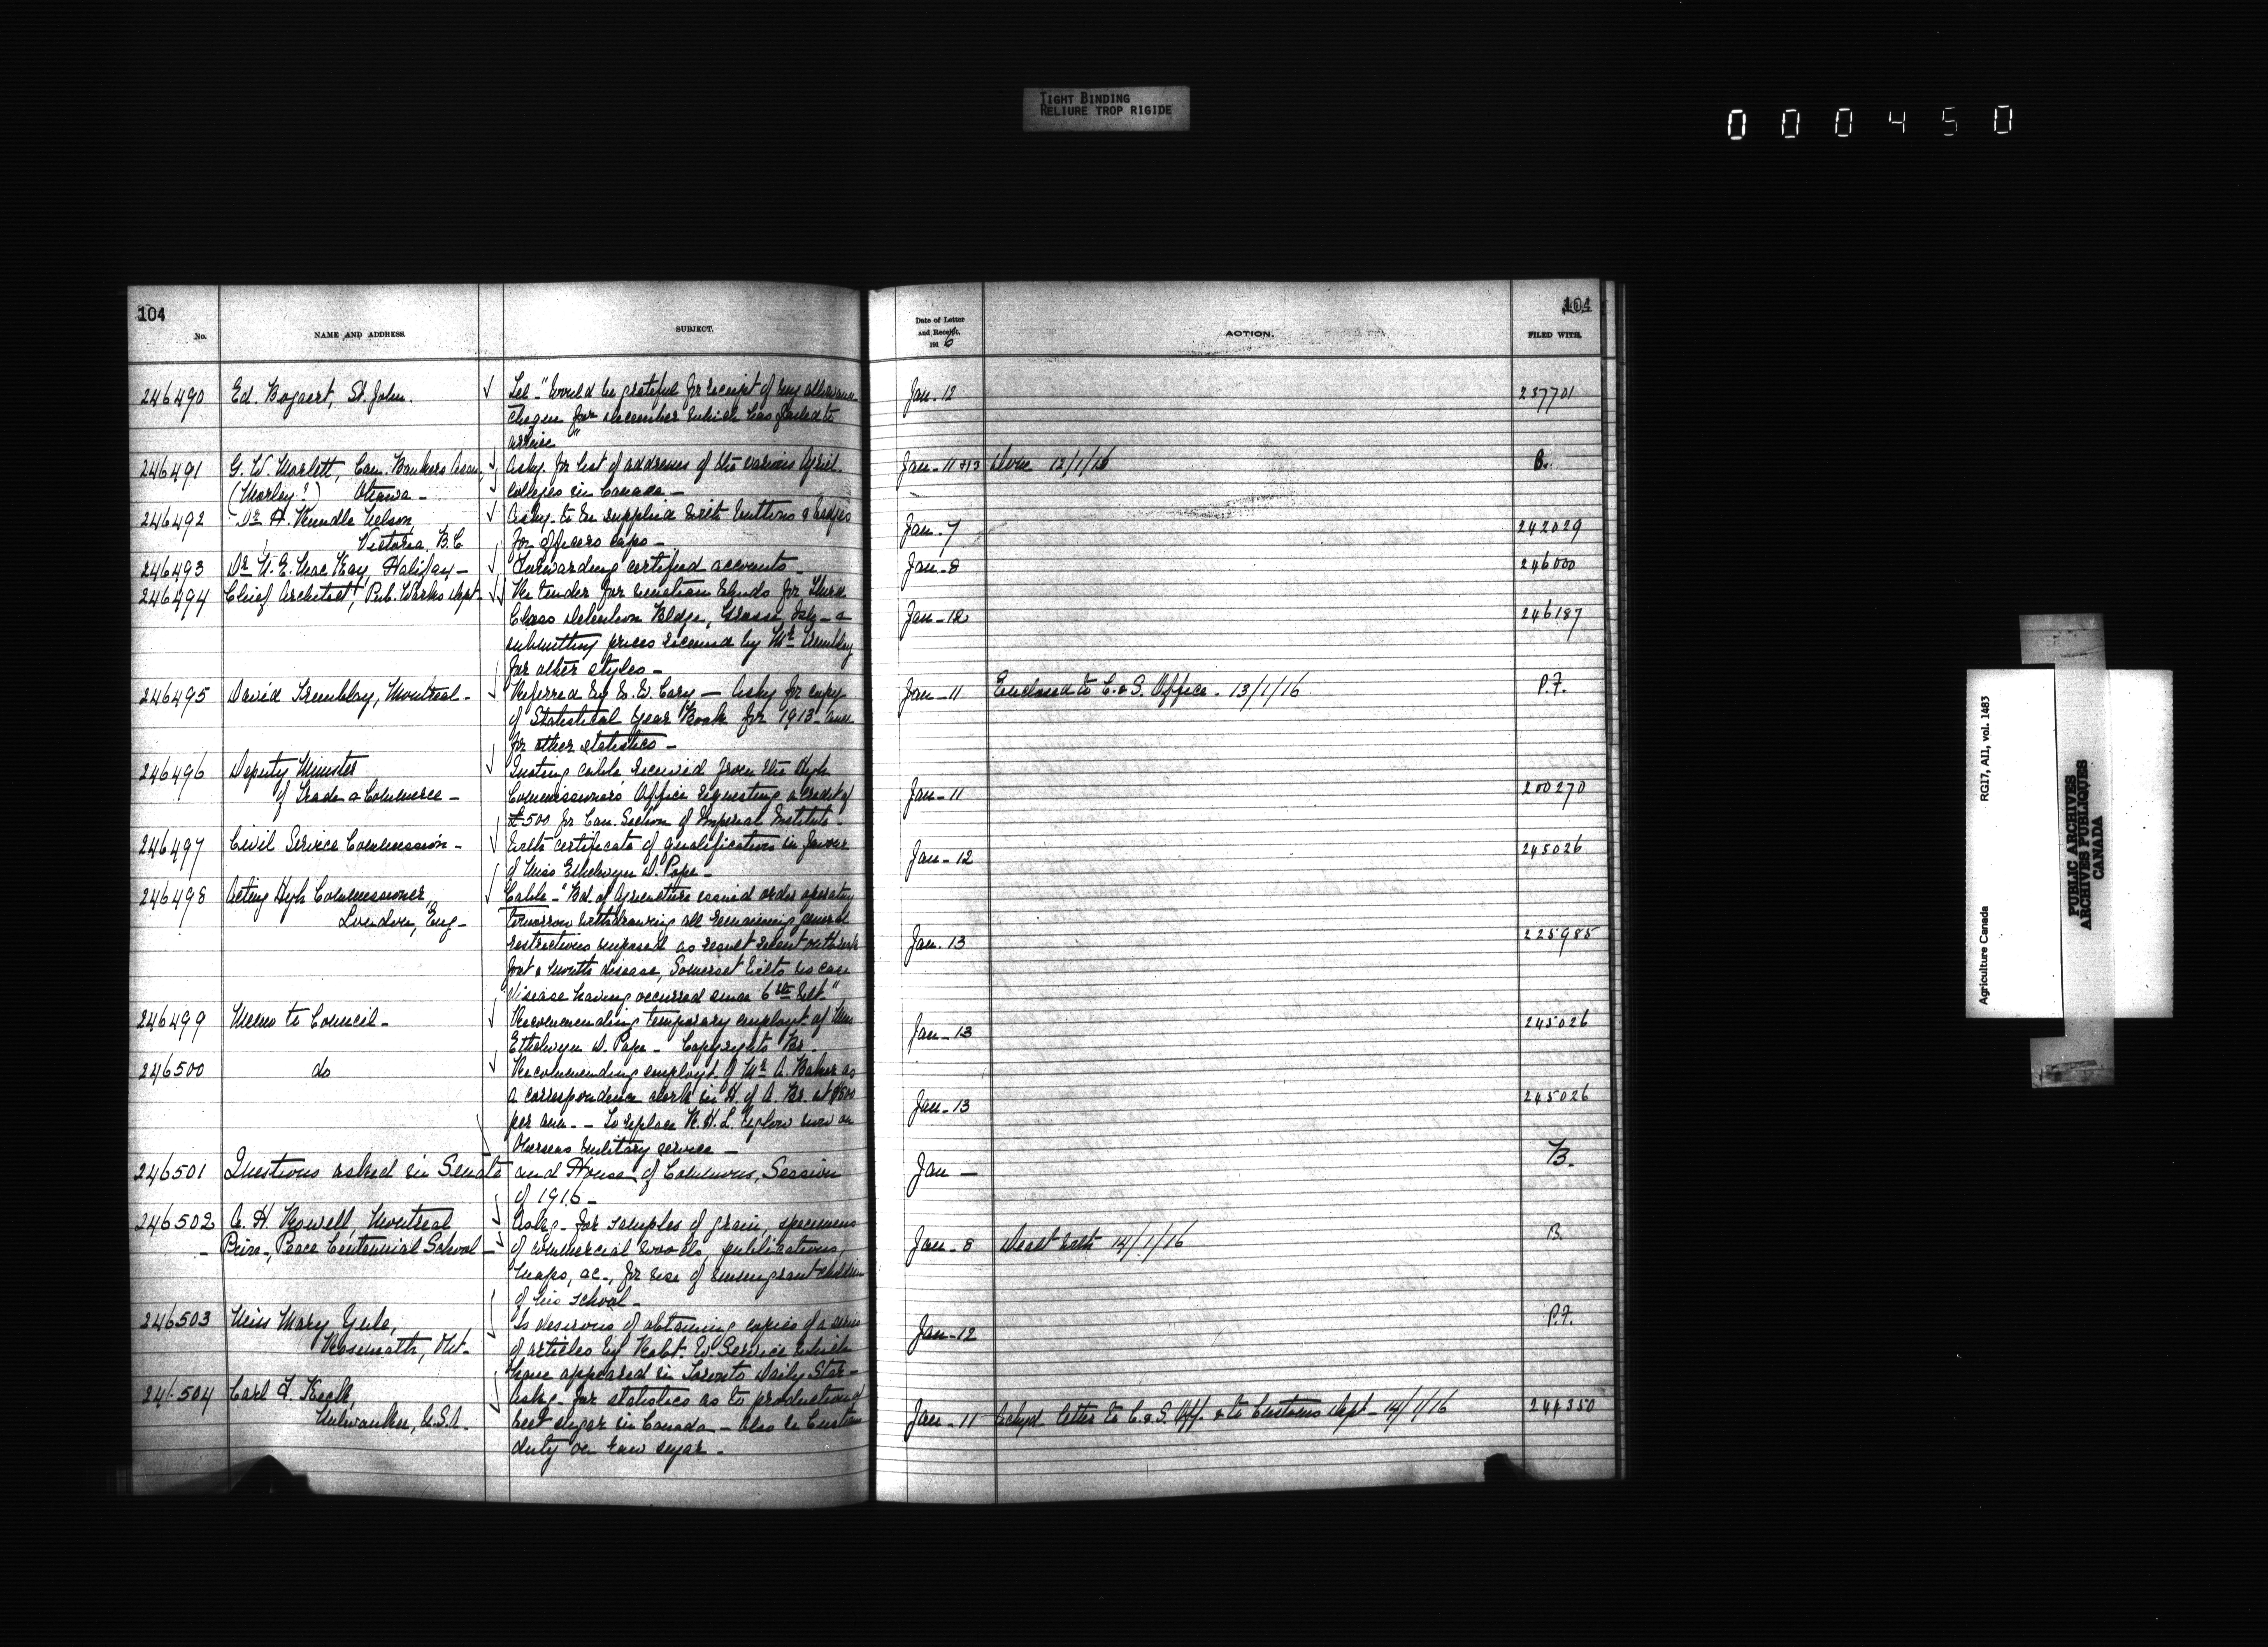 TIGHT BINDING
RELIURE TROP RIGIDE
000450
104
No.
NAME AND ADDRESS.
SUBJECT.
Date of Letter
and Receipt.
1916
ACTION.
104
FILED WITH.
246490 Ed. Bogaert, St. John. Tel. "Would be grateful for receipt of my allowance Jan-12 237701
cheque for December which has failed to
arrive"
246491 G. W. Marlett, Can. Bankers Assn, Askg. for list of addresses of the various Agricl. Jan-11 &13 Done 12/1/16 B.
(Morley?) Ottawa - colleges in Canada -
246492 Dr. H. Rundle Nelson, Askg. to be supplied with buttons & badges Jan-7 242029
Victoria, B.C. for officers caps -
246493 Dr. N. E. MacKay, Halifax - Forwarding certified accounts - Jan-8 246000
246494 Chief Architect, Pub. Works Dept. Re tender for venetian blinds for Third
Class Detention Bldgs, Grosse Isle - & Jan-12 246187
submitting prices received by Mr. Tremblay
for other styles -
246495 David Tremblay, Montreal - Referred by E. W. Cary - Askg for copy Jan-11 Enclosed to C. & S. Office - 13/1/16 P.F.
of Statistical Year Book for 1913 -
for other statistics -
246496 Deputy Minister Quoting cable received from the High
of Trade & Commerce - Commissioner's Office requesting a credit of Jan-11 200270
£500 for Can. Section of Imperial Institute -
246497 Civil Service Commission - With certificate of qualification in favour Jan-12 245026
of Miss Ethelwyn D. Pope -
246498 Acting High Commissioner, Cable - "Bd. of Agriculture issued order operative
London, Eng - tomorrow withdrawing all remaining general
restrictions imposed as result recent outbreak Jan-13 225985
foot & mouth disease, Somerset Wilts no case
disease having occurred since 6th Ult."
246499 Memo to Council - Recommending temporary employt. of Miss Jan-13 245026
Ethelwyn D. Pope - Copyrights Br.
246500 do Recommending employt. of Mr. A. Baker as
a correspondence clerk in H. of A. Br. at $800 Jan-13 245026
per ann. - To replace R. H. L. now on
Overseas military service -
246501 Questions asked in Senate and House of Commons, Session Jan - B.
of 1916 -
246502 A. H. Rowell, Montreal Askg - for samples of grain, specimens
- Prin., Peace Centennial School - of commercial woods, publications, Jan-8 Dealt with 14/1/16 B.
maps, &c., for use of immigrant children
of his school -
246503 Miss Mary Yule, Is desirous of obtaining copies of a series Jan-12 P.F.
Roseneath, Ont. of articles by Robt. W. Service which
have appeared in Toronto Daily Star -
246504 Carl F. Keck, Askg - for statistics as to production of
Milwaukee, U.S.A. beet sugar in Canada - also re Customs Jan-11 Ackgd. letter to C. & S. Off. & to Customs Dept - 14/1/16 244350
duty on raw sugar -
Agriculture Canada RG17, AII, vol. 1483
PUBLIC ARCHIVES
ARCHIVES PUBLIQUES
CANADA